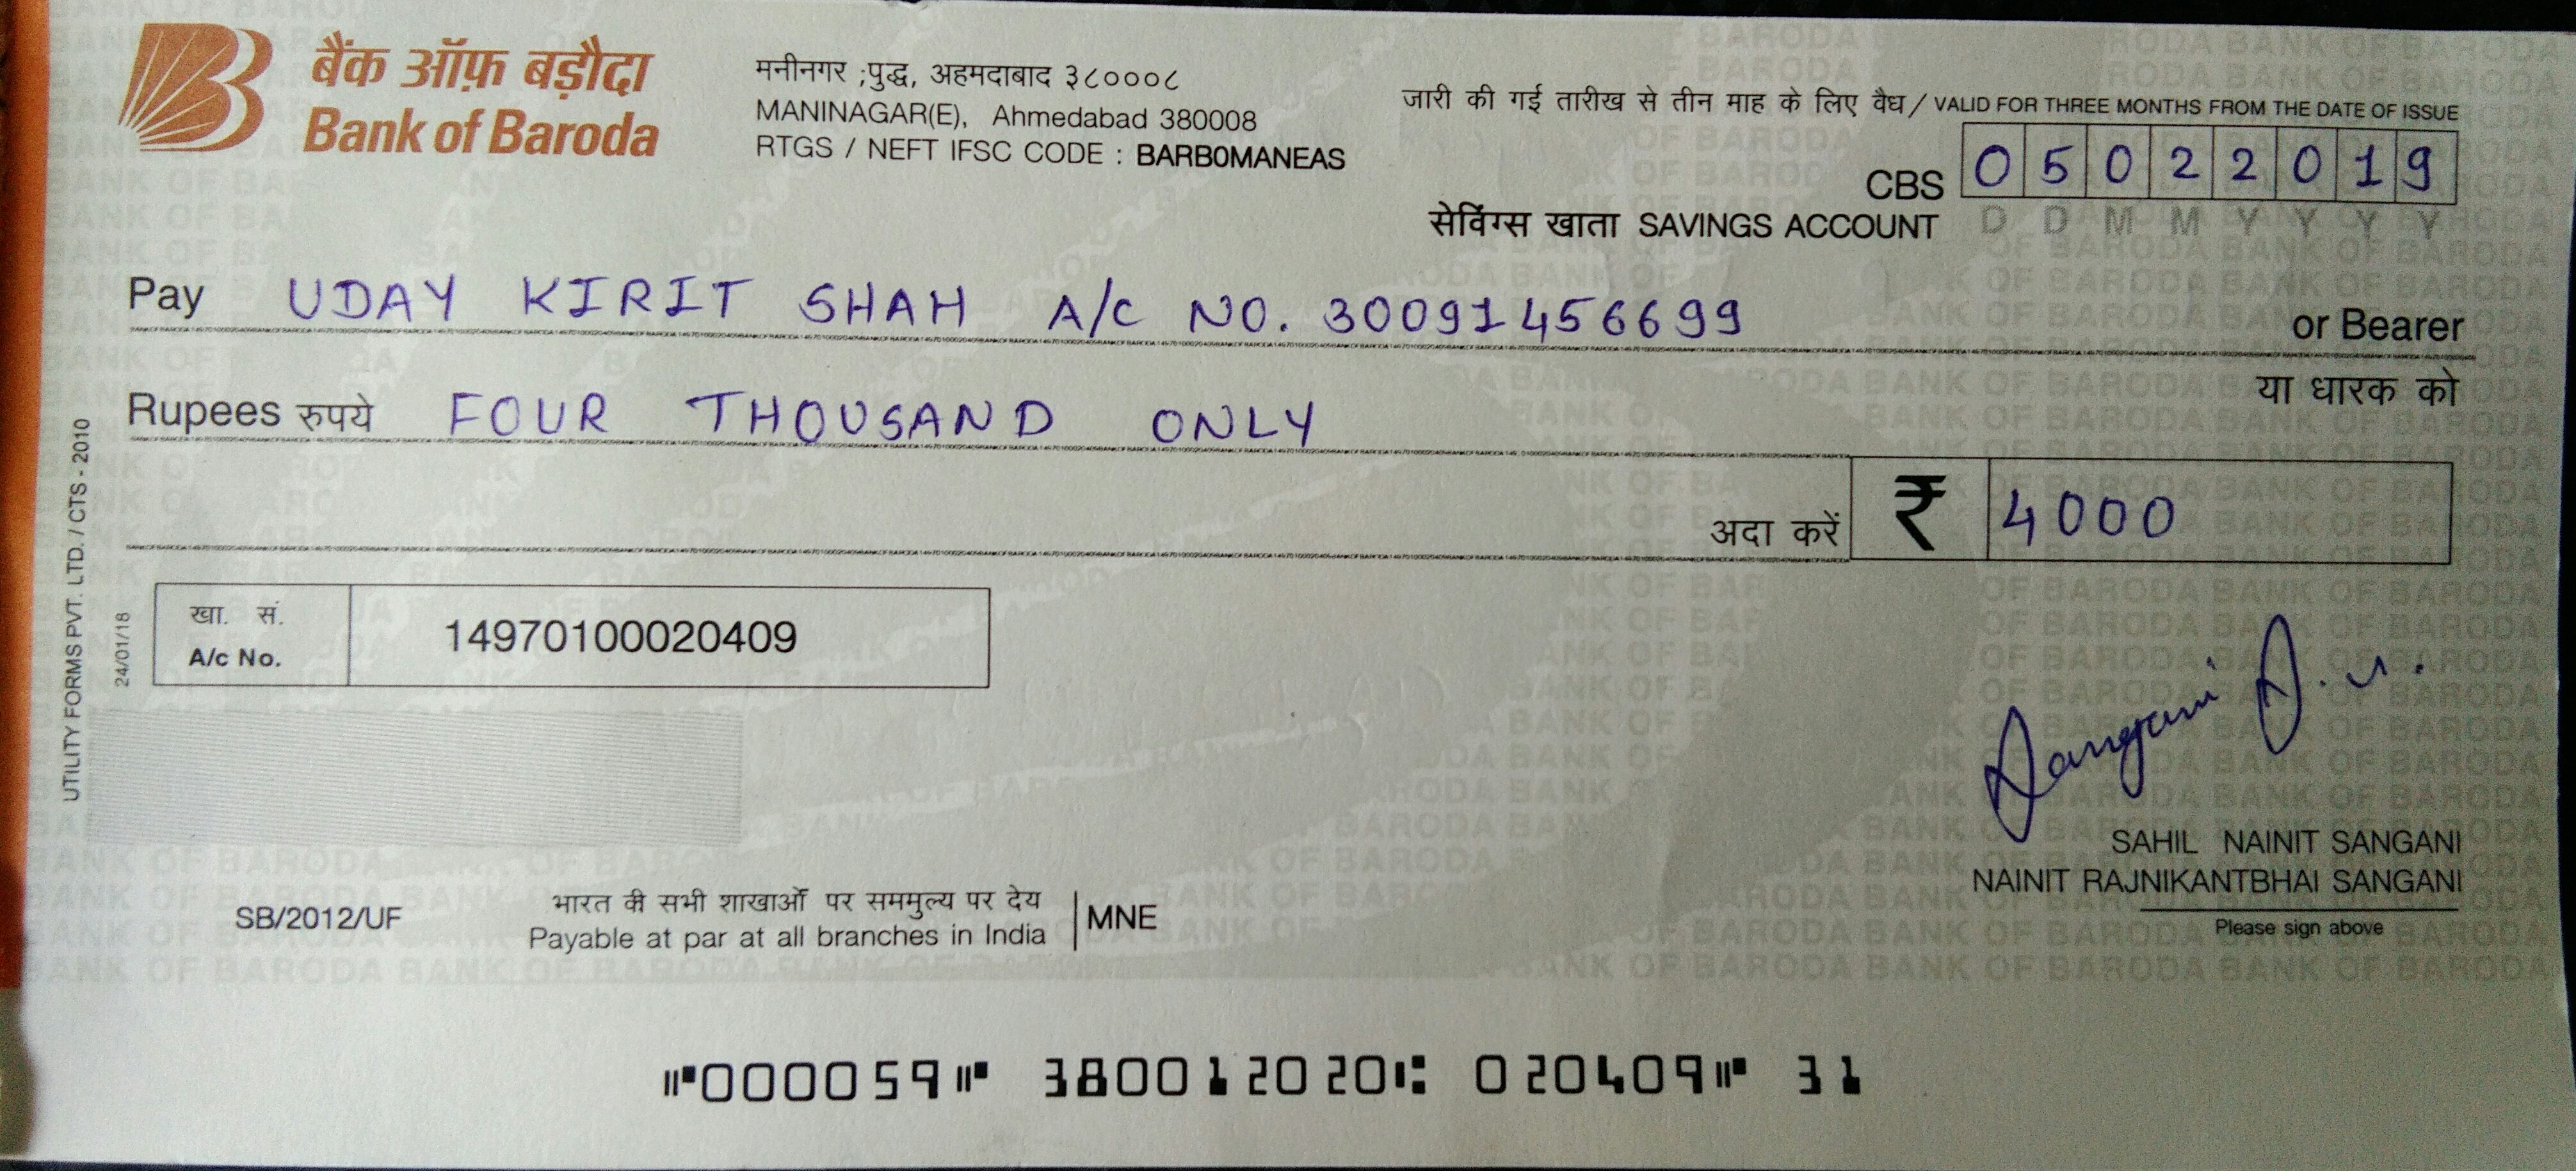 बैंक ऑफ़ बड़ौदा
Bank of Baroda
मनीनगर ;पुद्ध, अहमदाबाद ३८०००८
MANINAGAR(E), Ahmedabad 380008
RTGS / NEFT IFSC CODE : BARB0MANEAS
जारी की गई तारीख से तीन माह के लिए वैध / VALID FOR THREE MONTHS FROM THE DATE OF ISSUE
CBS 0 5 0 2 2 0 1 9
सेविंग्स खाता SAVINGS ACCOUNT D D M M Y Y Y Y
Pay UDAY KIRIT SHAH A/C NO. 30091456699 or Bearer
या धारक को
Rupees रुपये FOUR THOUSAND ONLY
अदा करें ₹ 4000
खा. सं.
A/c No. 14970100020409
UTILITY FORMS PVT. LTD. / CTS - 2010
24/01/18
Sangani
SAHIL NAINIT SANGANI
NAINIT RAJNIKANTBHAI SANGANI
Please sign above
SB/2012/UF
भारत की सभी शाखाओं पर सममुल्य पर देय
Payable at par at all branches in India
MNE
⑈000059⑈ 380012020⑆ 020409⑈ 31